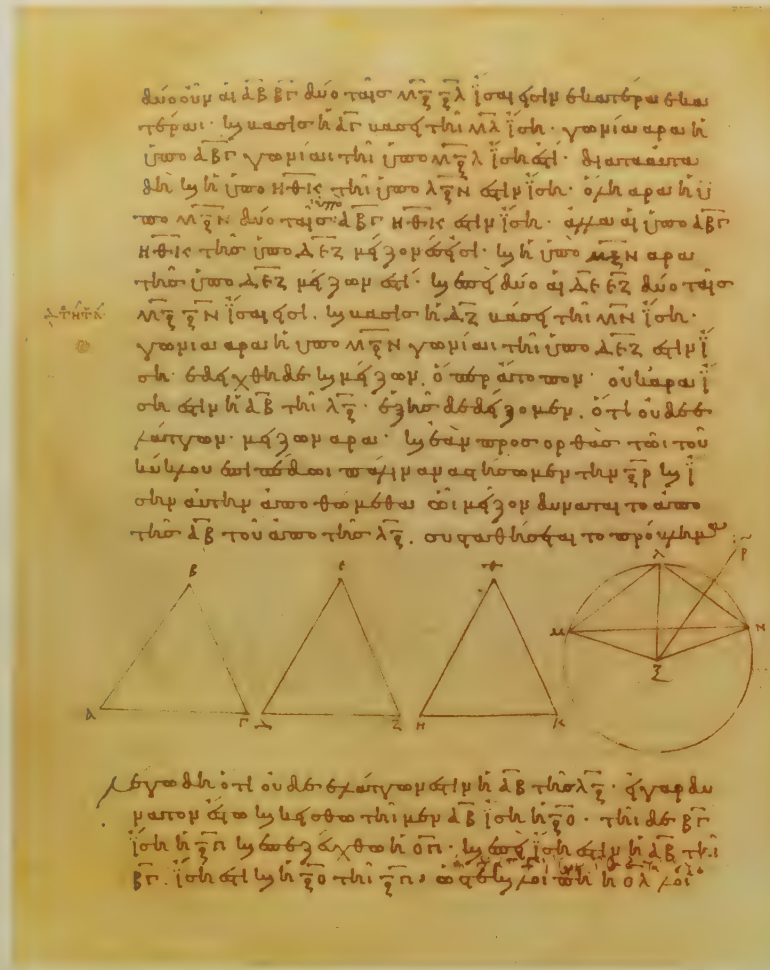 δύο οὖν αἱ ΑΒ ΒΓ δύο ταῖς ΜΞ ΞΛ ἴσαι εἰσὶν ἑκατέρα ἑκα
τέραι· καὶ βάσις ἡ ΑΓ βάσει τῆι ΜΛ ἴση· γωνία ἄρα ἡ
ὑπὸ ΑΒΓ γωνίαι τῆι ὑπὸ ΜΞΛ ἴση ἐστί· διὰ τὰ αὐτὰ
δὴ καὶ ἡ ὑπὸ ΗΘΚ τῆι ὑπὸ ΛΞΝ ἐστιν ἴση· ὅλη ἄρα ἡ ὑ
πὸ ΜΞΝ δύο ταῖς ὑπὸ ΑΒΓ ΗΘΚ ἐστιν ἴση· ἀλλὰ αἱ ὑπὸ ΑΒΓ
ΗΘΚ τῆς ὑπὸ ΔΕΖ μείζονές εἰσι· καὶ ἡ ὑπὸ ΜΞΝ ἄρα
τῆς ὑπὸ ΔΕΖ μείζων ἐστί· καὶ ἐπεὶ δύο αἱ ΔΕ ΕΖ δύο ταῖς
ΜΞ ΞΝ ἴσαι εἰσί, καὶ βάσις ἡ ΔΖ βάσει τῆι ΜΝ ἴση·
γωνία ἄρα ἡ ὑπὸ ΜΞΝ γωνίαι τῆι ὑπὸ ΔΕΖ ἐστιν ἴ
ση· ἐδείχθη δὲ καὶ μείζων, ὅπερ ἄτοπον· οὐκ ἄρα ἴ
ση ἐστὶν ἡ ΑΒ τῆι ΛΞ· ἑξῆς δὲ δείξομεν, ὅτι οὐδὲ ἐ
λάττων· μείζων ἄρα· καὶ ἐὰν πρὸς ὀρθὰς τῶι τοῦ
κύκλου ἐπιπέδωι πάλιν ἀναστήσωμεν τὴν ΞΡ καὶ ἴ
σην αὐτὴν ἀποθώμεθα ὧι μεῖζον δύναται τὸ ἀπὸ
τῆς ΑΒ τοῦ ἀπὸ τῆς ΛΞ, συσταθήσεται τὸ πρόβλημα
Β Ε Θ Λ Ρ
Μ Ν
Ξ
Α Γ Δ Ζ Η Κ
λέγω δὴ ὅτι οὐδὲ ἐλάττων ἐστὶν ἡ ΑΒ τῆς ΛΞ· εἰ γὰρ δυ
νατὸν ἔστω καὶ κείσθω τῆι μὲν ΑΒ ἴση ἡ ΞΟ· τῆι δὲ ΒΓ
ἴση ἡ ΞΠ καὶ ἐπεζεύχθω ἡ ΟΠ· καὶ ἐπεὶ ἴση ἐστὶν ἡ ΑΒ τῆι
ΒΓ, ἴση ἐστὶ καὶ ἡ ΞΟ τῆι ΞΠ, ὥστε καὶ λοιπὴ ἡ ΟΛ